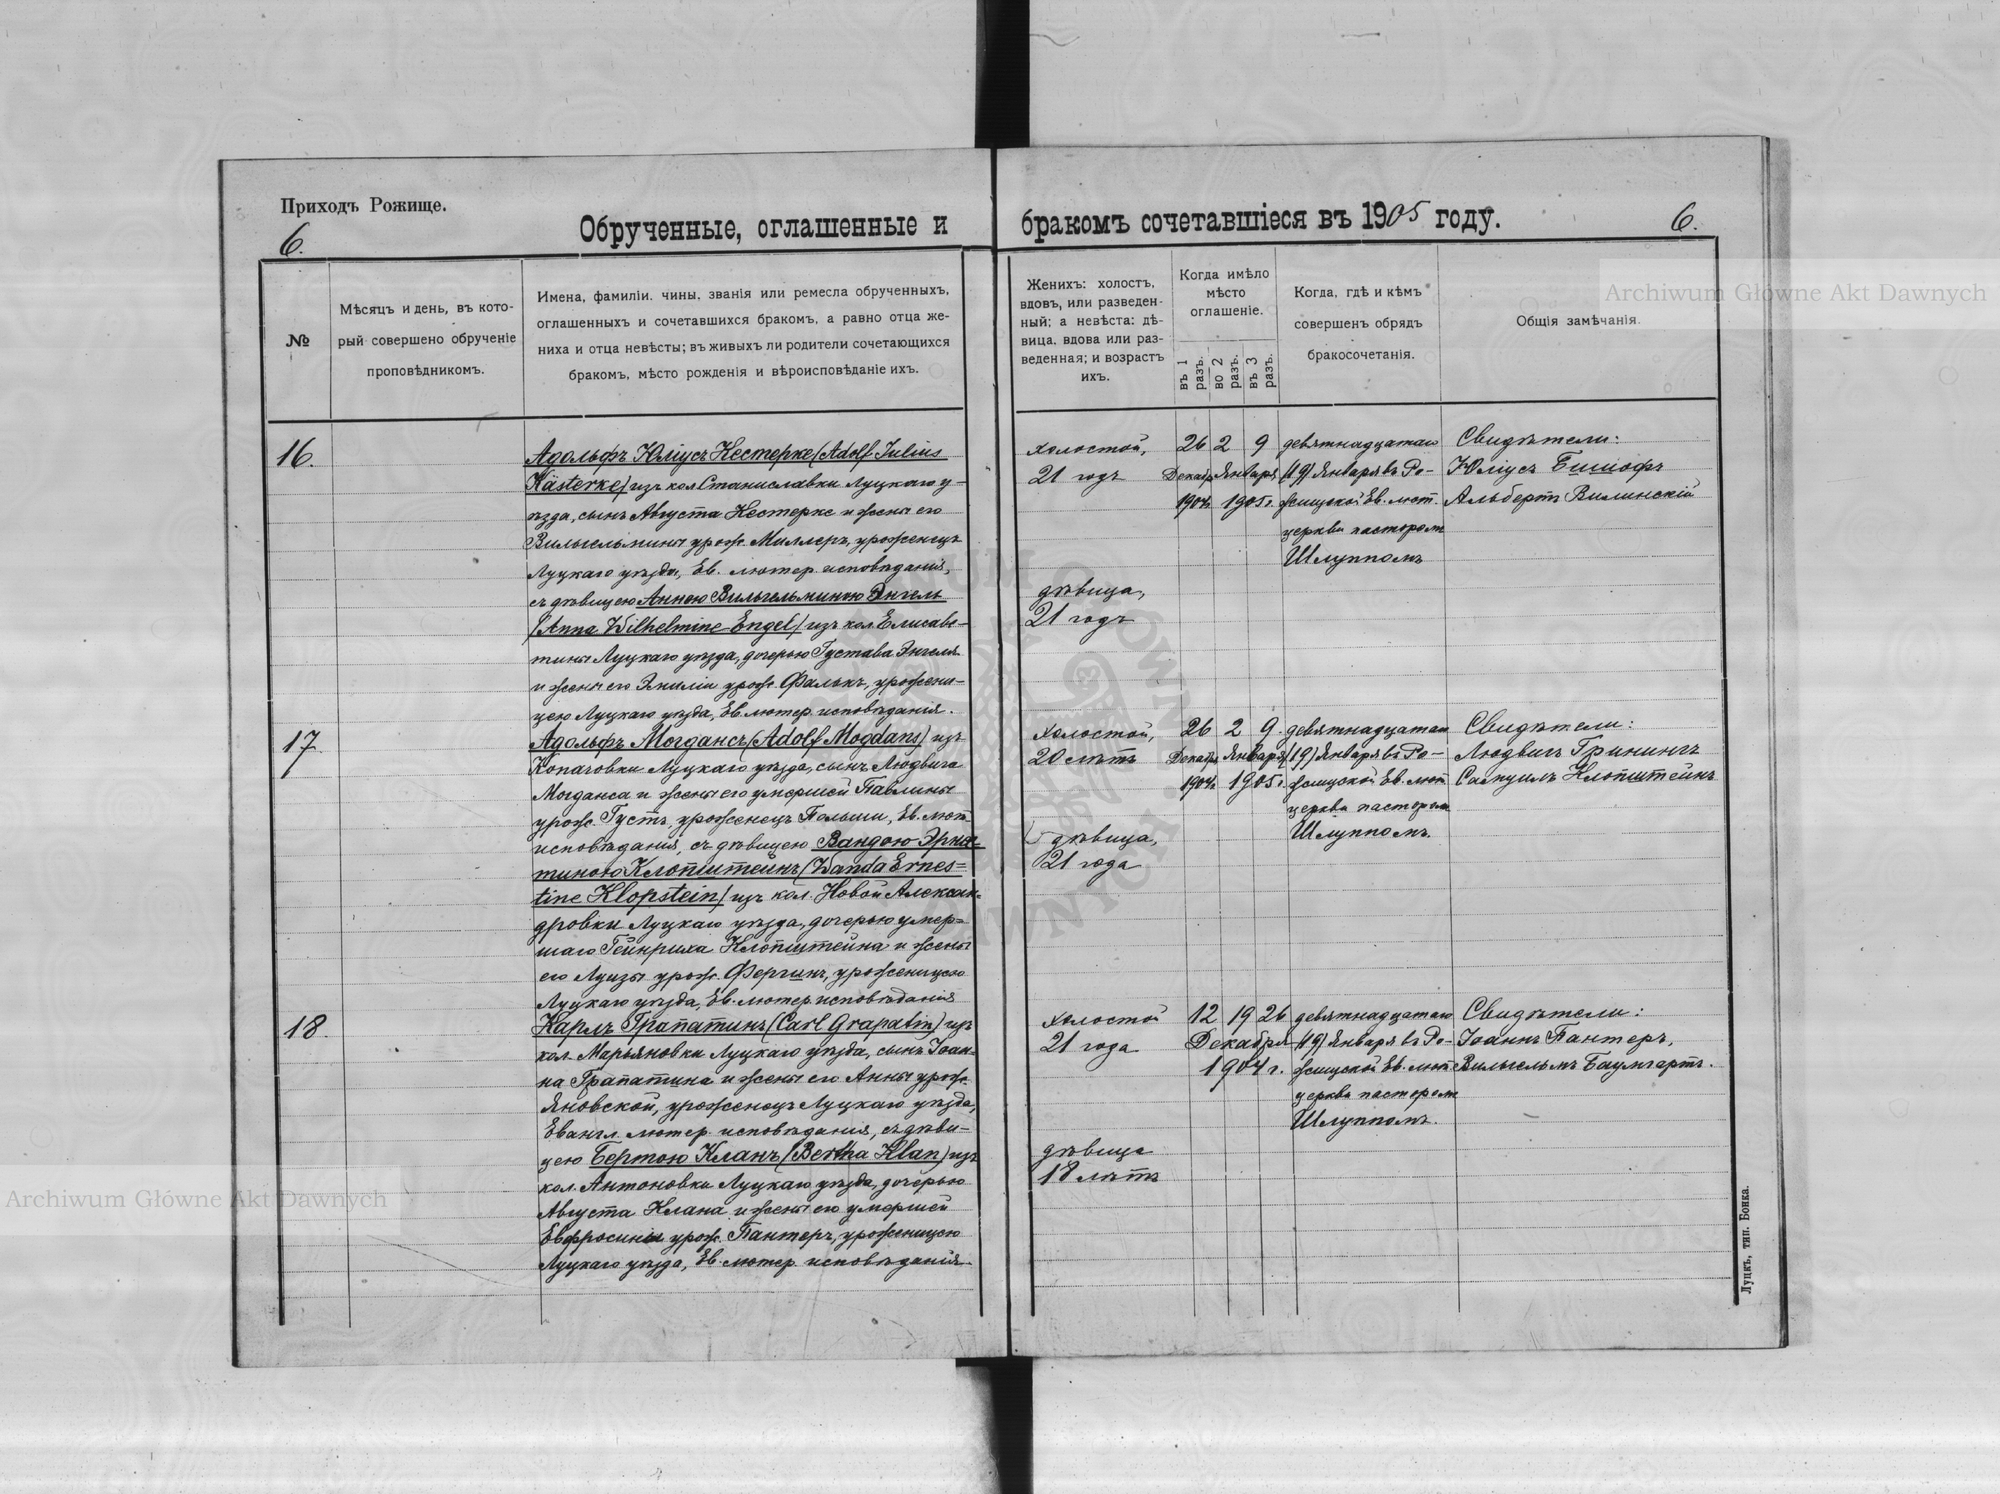 Приходъ Рожище.
6.
Обрученные, оглашенные и
бракомъ сочетавшіеся въ 1905 году.
6.
№
Мѣсяцъ и день, въ кото-
рый совершено обрученіе
проповѣдникомъ.
Имена, фамиліи, чины, званія или ремесла обрученныхъ,
оглашенныхъ и сочетавшихся бракомъ, а равно отца же-
ниха и отца невѣсты; въ живыхъ ли родители сочетающихся
бракомъ, мѣсто рожденія и вѣроисповѣданіе ихъ.
Женихъ: холостъ,
вдовъ, или разведен-
ный; а невѣста: дѣ-
вица, вдова или раз-
веденная; и возрастъ
ихъ.
Когда имѣло
мѣсто
оглашеніе.
въ 1
разъ.
во 2
разъ.
въ 3
разъ.
Когда, гдѣ и кѣмъ
совершенъ обрядъ
бракосочетанія.
Общія замѣчанія.
16.
Адольфъ Юліусъ Кестерке (Adolf Julius
Kästerke) изъ кол Станиславки Луцкаго у-
ѣзда, сынъ Августа Кестерке и жены его
Вильгельмины урож. Миллеръ, уроженецъ
Луцкаго уѣзда, Ев. лютер. исповѣданія,
съ дѣвицею Анною Вильгельминою Энгель
(Anna Wilhelmine Engel) изъ кол. Елисаве-
тины Луцкаго уѣзда, дочерью Густава Энгеля
и жены его Эмиліи урож. Фалькъ, урожени-
цею Луцкаго уѣзда, Ев. лютер. исповѣданія.
холостой,
21 годъ
дѣвица,
21 годъ
26 2 9
Декабр. Января
1904 г. 1905 г.
девятнадцатаго
(19) Января въ Ро-
жищской Ев. лют.
церкви пасторомъ
Шлуппомъ
Свидѣтели:
Юліусъ Бишофъ
Альбертъ Вилинскій
17.
Адольфъ Могдансъ (Adolf Mogdans) изъ
Копачовки Луцкаго уѣзда, сынъ Людвига
Могданса и жены его умершей Павлины
урож. Густъ, уроженецъ Польши, Ев. лют.
исповѣданія, съ дѣвицею Вандою Эрне-
тиною Клопштейнъ (Wanda Ernes=
tine Klopstein) изъ кол. Новой Алексан-
дровки Луцкаго уѣзда, дочерью умер=
шаго Гейнриха Клопштейна и жены
его Луизы урож. Фергинъ, уроженицею
Луцкаго уѣзда, Ев. лютер. исповѣданія
холостой,
20 лѣтъ
дѣвица,
21 года
26 2 9.
Декабр. Января
1904 г. 1905 г.
девятнадцатаго
(19) Января въ Ро-
жищской Ев. лют.
церкви пасторомъ
Шлуппомъ.
Свидѣтели:
Людвигъ Гринингъ
Самуилъ Клопштейнъ
18.
Карлъ Грапатинъ (Carl Grapatin) изъ
кол. Марьяновки Луцкаго уѣзда, сынъ Іоан-
на Грапатина и жены его Анны урож.
Яновской, уроженецъ Луцкаго уѣзда,
Евангл. лютер. исповѣданія, съ дѣви-
цею Бертою Кланъ (Bertha Klan) изъ
кол. Антоновки Луцкаго уѣзда, дочерью
Августа Клана и жены его умершей
Евфросиніи урож. Пантеръ, уроженицею
Луцкаго уѣзда, Ев. лютер. исповѣданія
холостой
21 года
дѣвица
18 лѣтъ
12 19 26
Декабря
1904 г.
девятнадцатаго
(19) Января въ Ро-
жищской Ев. лют.
церкви пасторомъ
Шлуппомъ.
Свидѣтели:
Іоаннъ Пантеръ,
Вильгельмъ Баумгартъ.
Луцкъ, тип. Бонка.
Archiwum Główne Akt Dawnych
Archiwum Główne Akt Dawnych